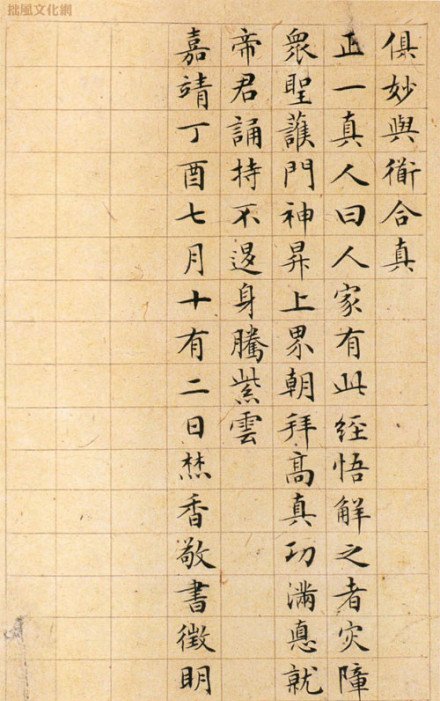 拙風文化網
俱妙與衜合真
正一真人曰人家有此經悟解之者灾障
衆聖護門神昇上界朝拜髙真功滿悳就
帝君誦持不退身騰紫雲
嘉靖丁酉七月十有二日焚香敬書徵明